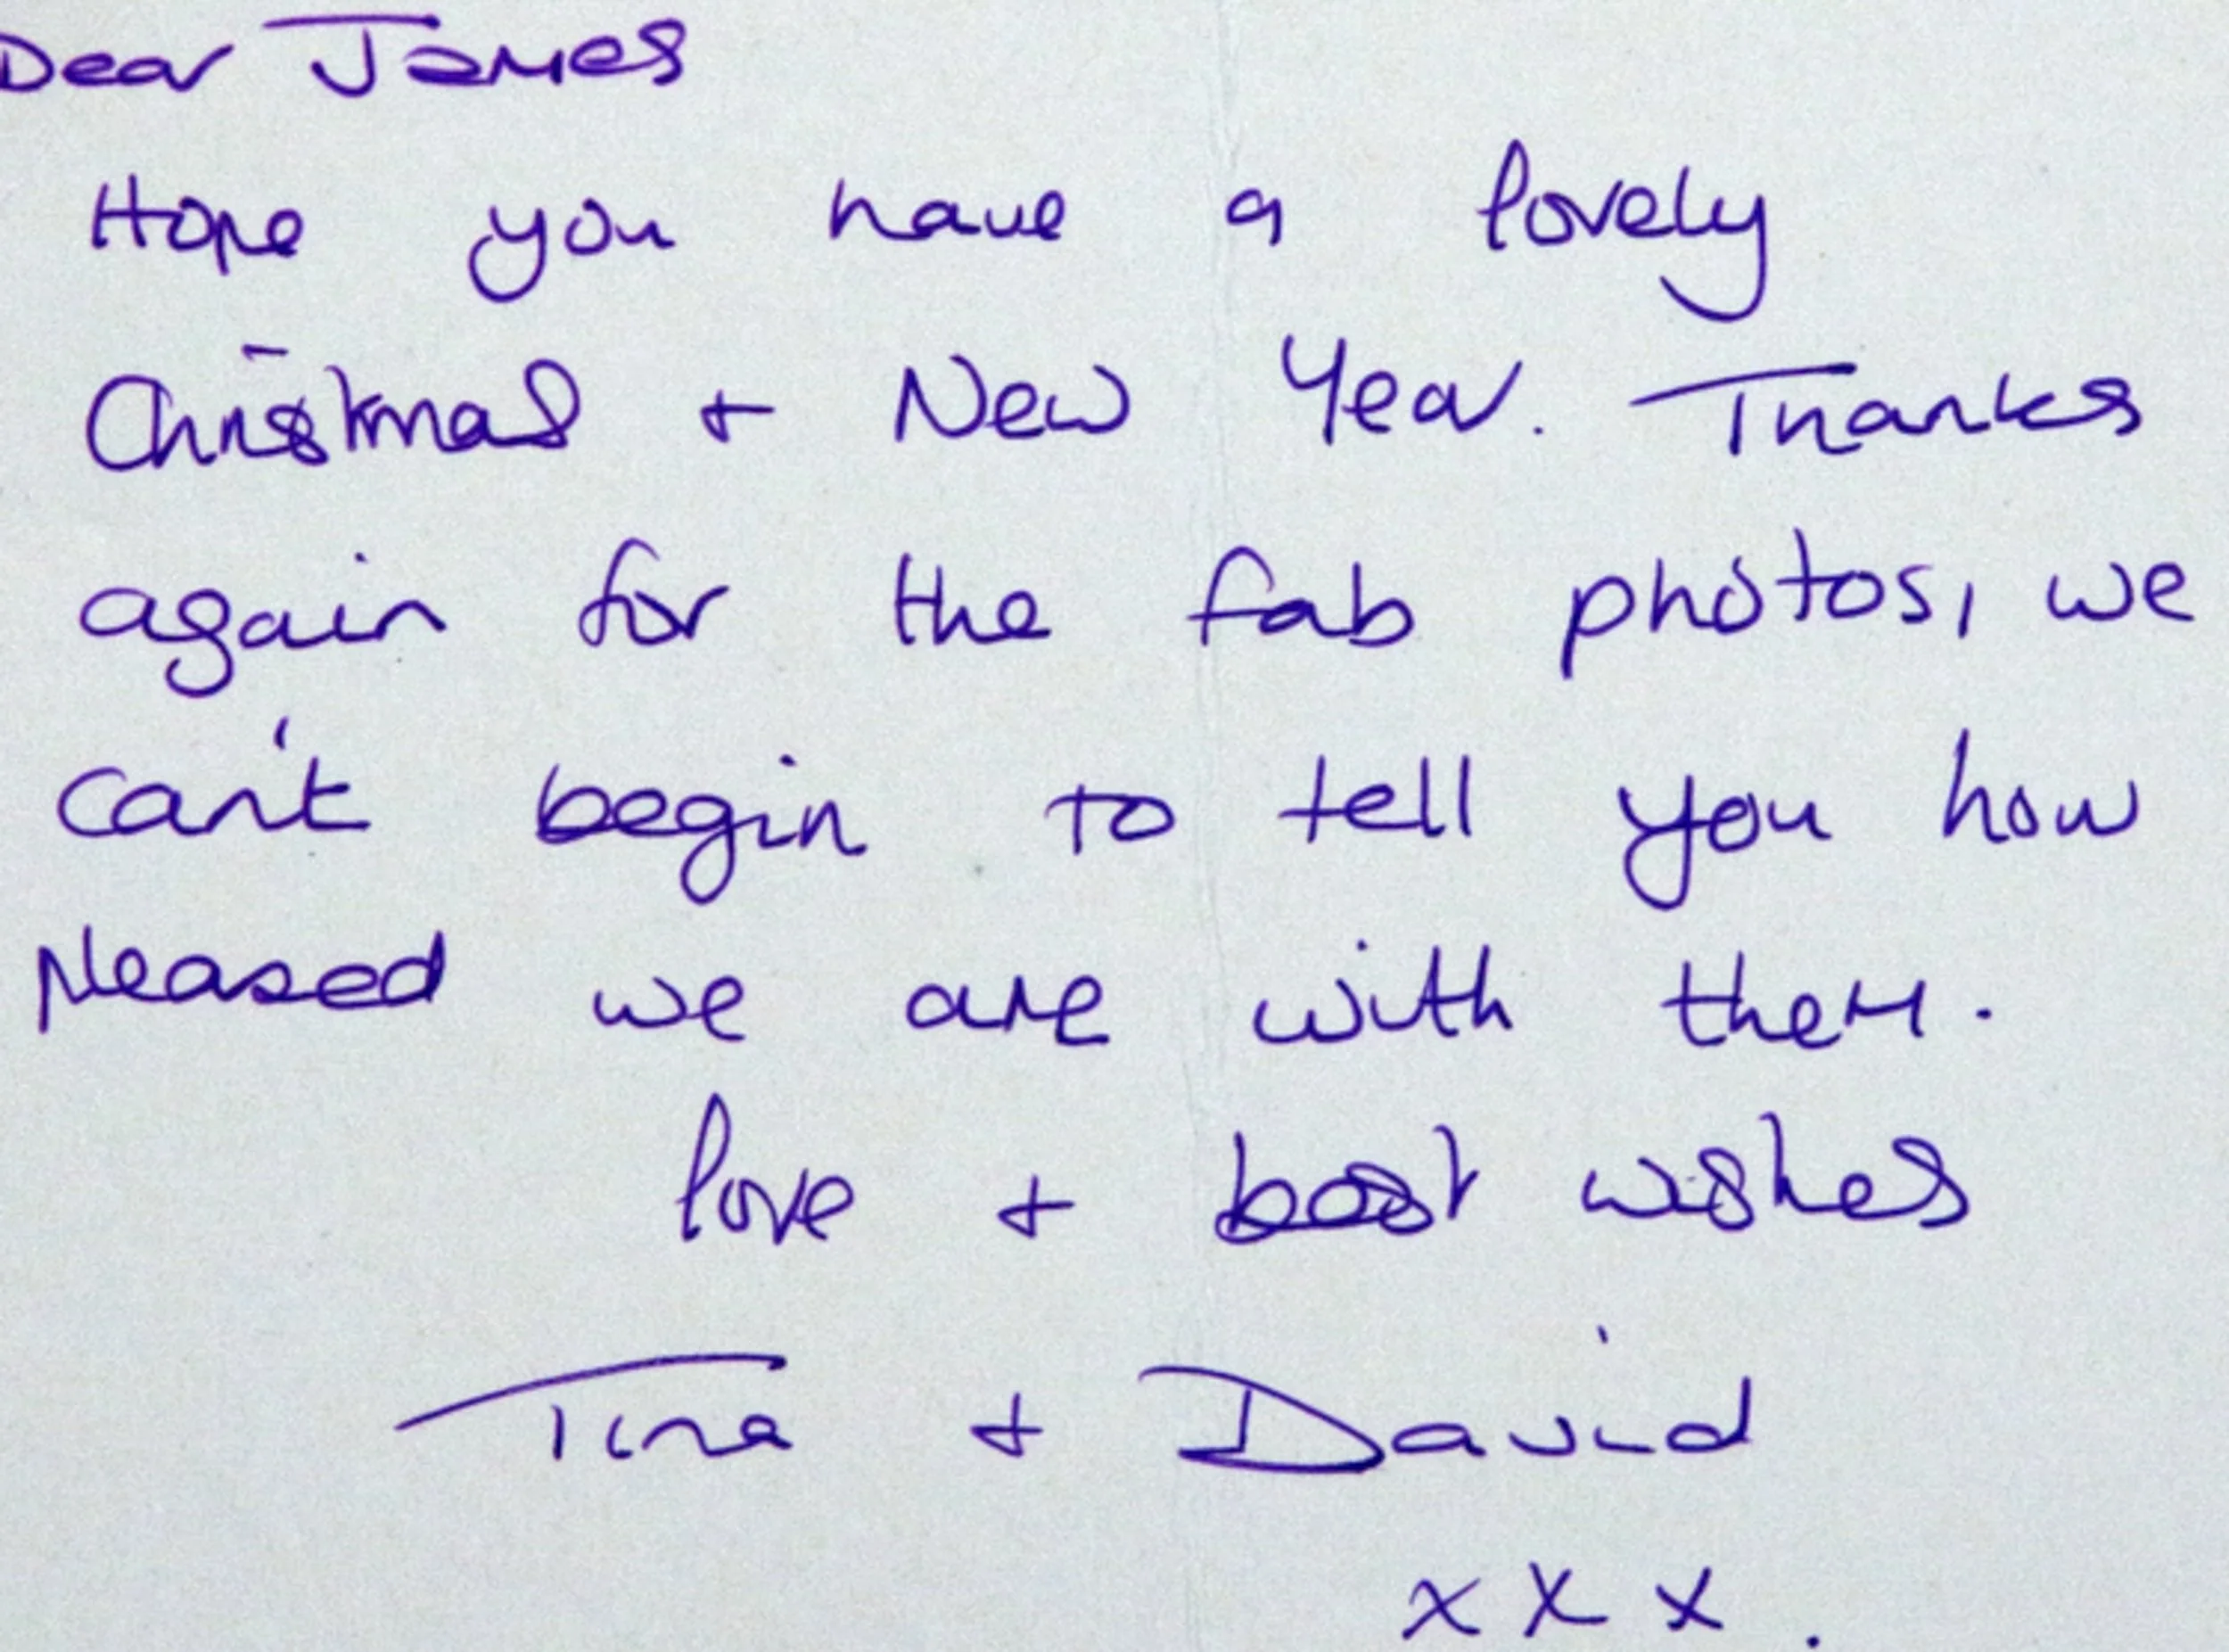 Dear James
Hope you have a lovely
Christmas + New Year. Thanks
again for the fab photos, we
can't begin to tell you how
pleased we are with them.
love + best wishes
Tina + David
x x x .